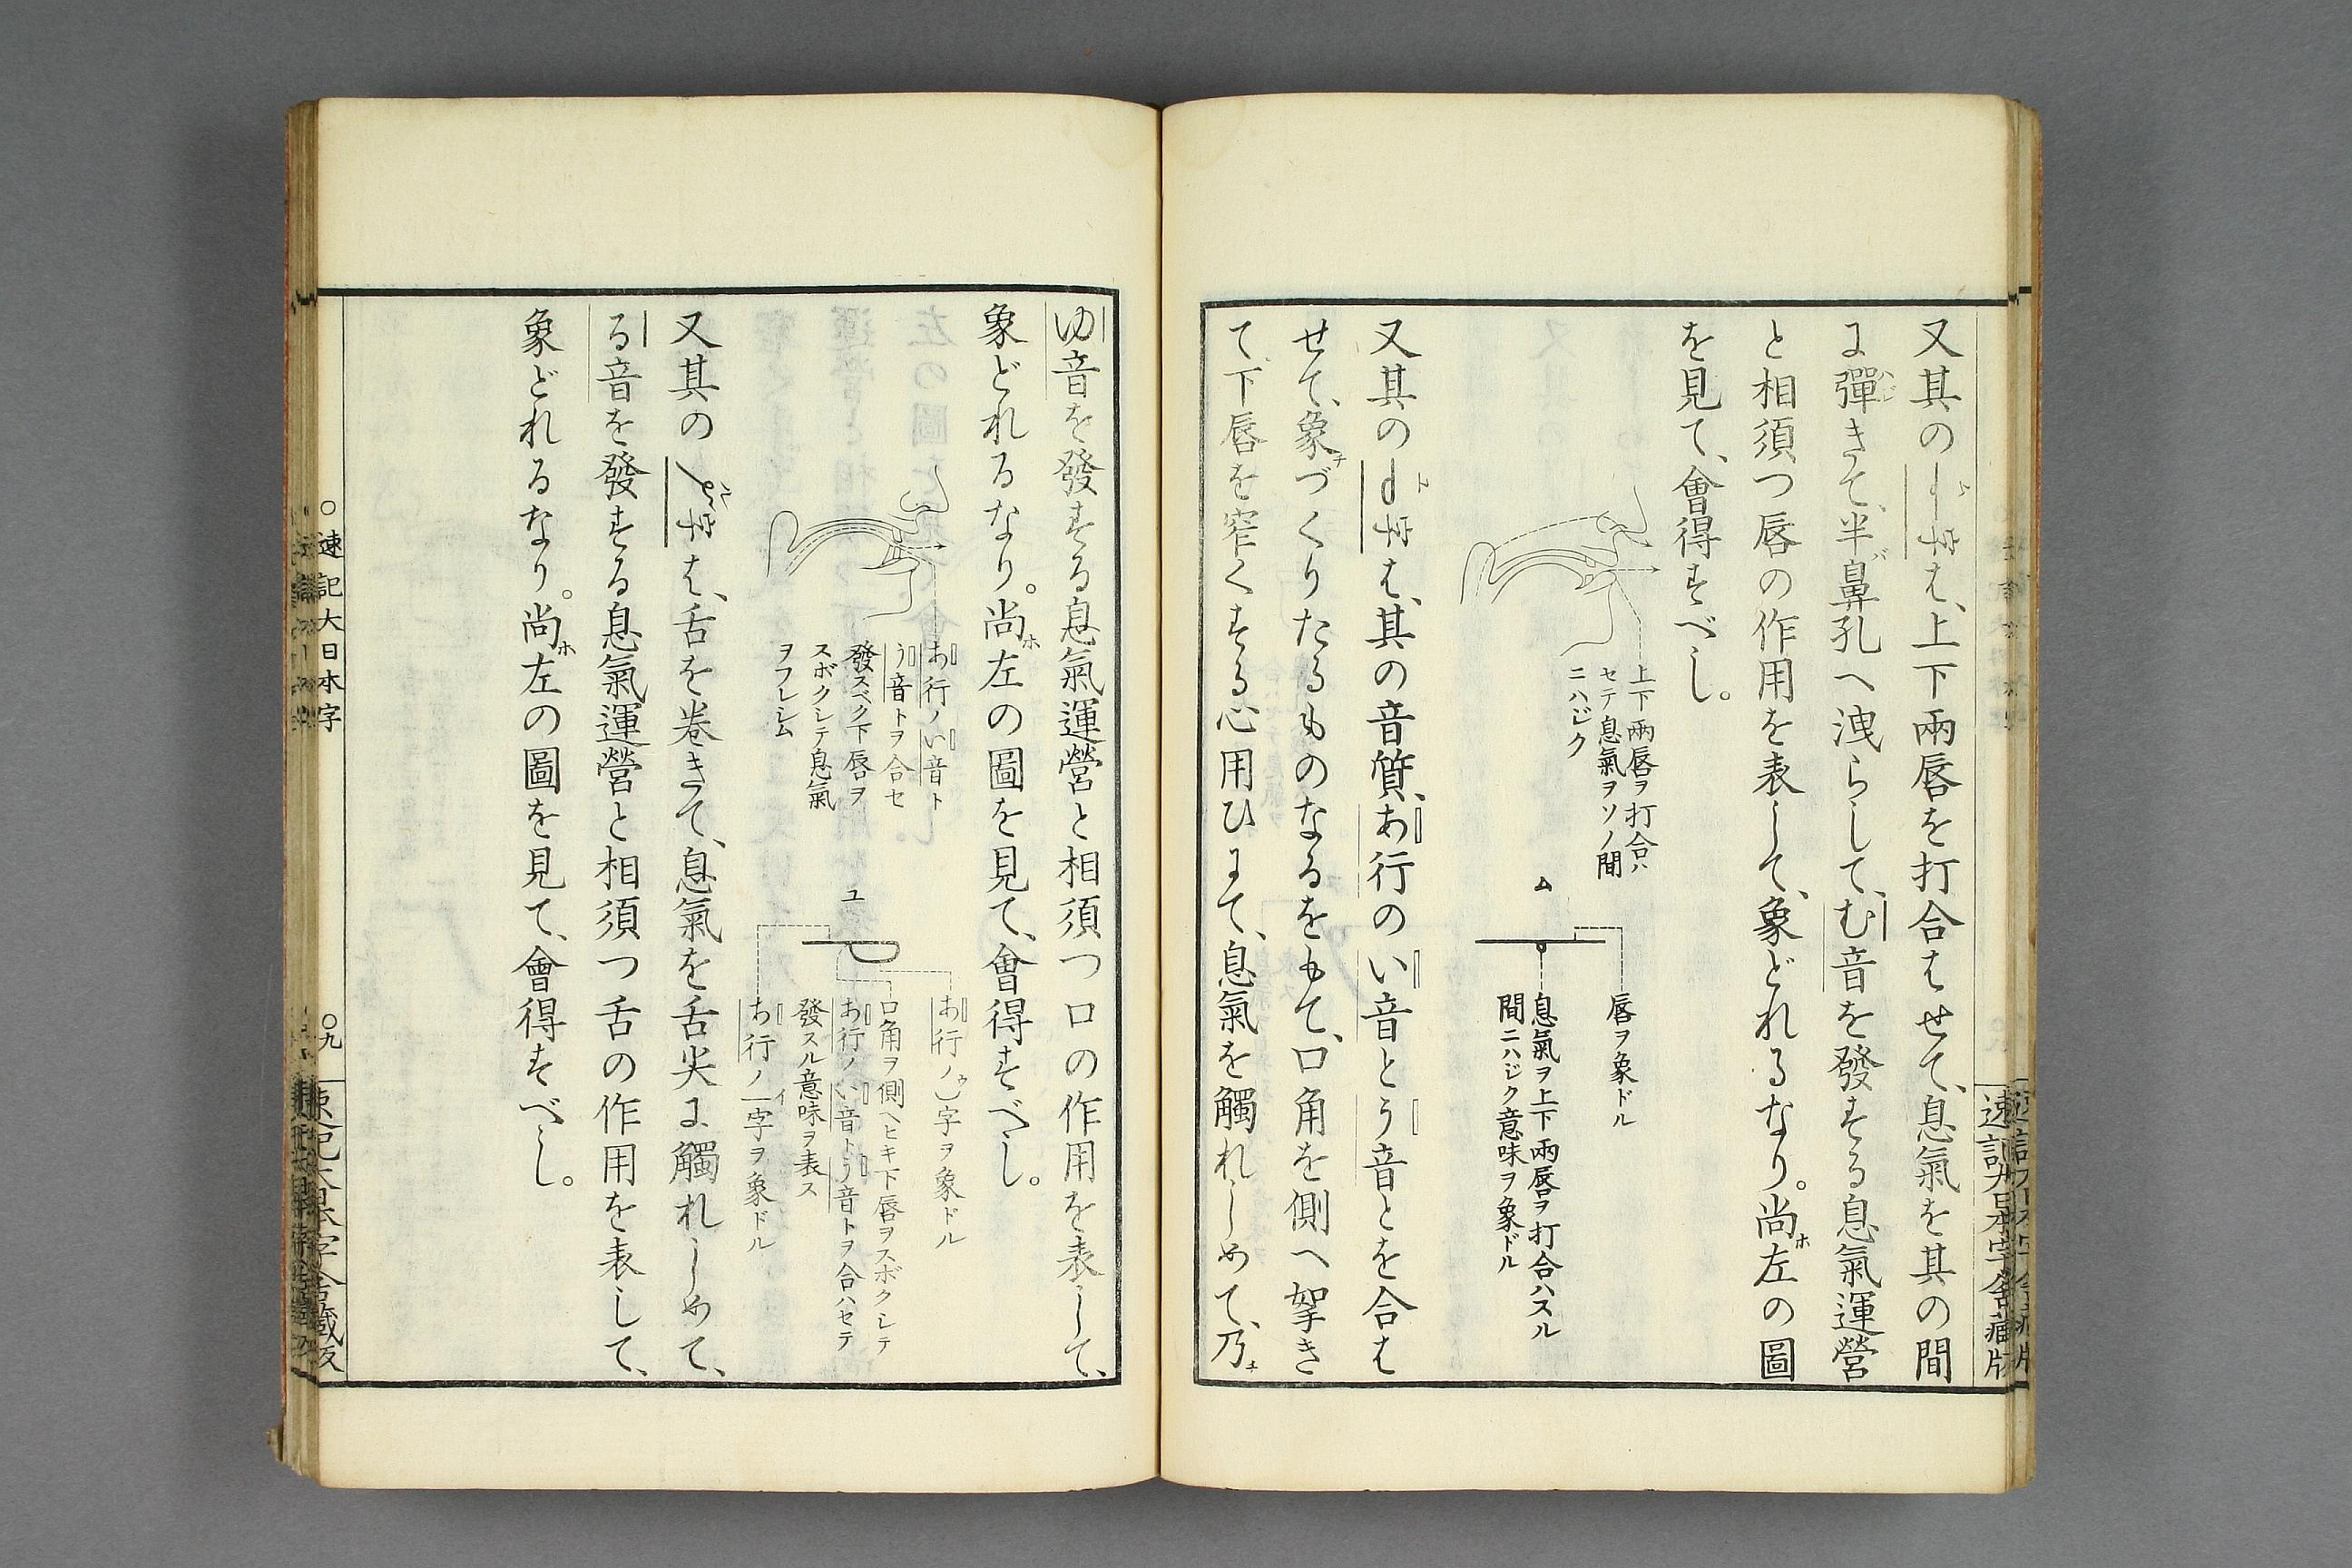 又其の
は、上下兩唇を打合はせて、息氣を其の間
に彈きて、半バ鼻孔へ洩らして、む音を發する息氣運營
と相須つ唇の作用を表して、象どれるなり。尚ホ左の圖
を見て、會得すべし。
上下兩唇ヲ打合ハ
セテ息氣ヲソノ間
ニハジク
ム
唇ヲ象ドル
息氣ヲ上下兩唇ヲ打合ハスル
間ニハジク意味ヲ象ドル
又其の
は、其の音質、あ行のい音とう音とを合は
せて、象チづくりたるものなるをもて、口角を側へ挐き
て、下唇を窄くする心用ひにて、息氣を觸れしめて、乃チ
ゆ音を發する息氣運營と相須つ口の作用を表して、
象どれるなり。尚ホ左の圖を見て、會得すべし。
あ行ノい音ト
う音トヲ合セ
發スベク下唇ヲ
スボクシテ息氣
ヲフレシム
ユ
あ行ノ
字ヲ象ドル
口角ヲ側ヘヒキ下唇ヲスボクシテ
あ行ノい音トう音トヲ合ハセテ
發スル意味ヲ表ス
あ行ノ
字ヲ象ドル
又其の
は、舌を卷きて、息氣を舌尖に觸れしめて、
る音を發する息氣運營と相須つ舌の作用を表して、
象どれるなり。尚ホ左の圖を見て、會得すべし。
○速記大日本字
○九